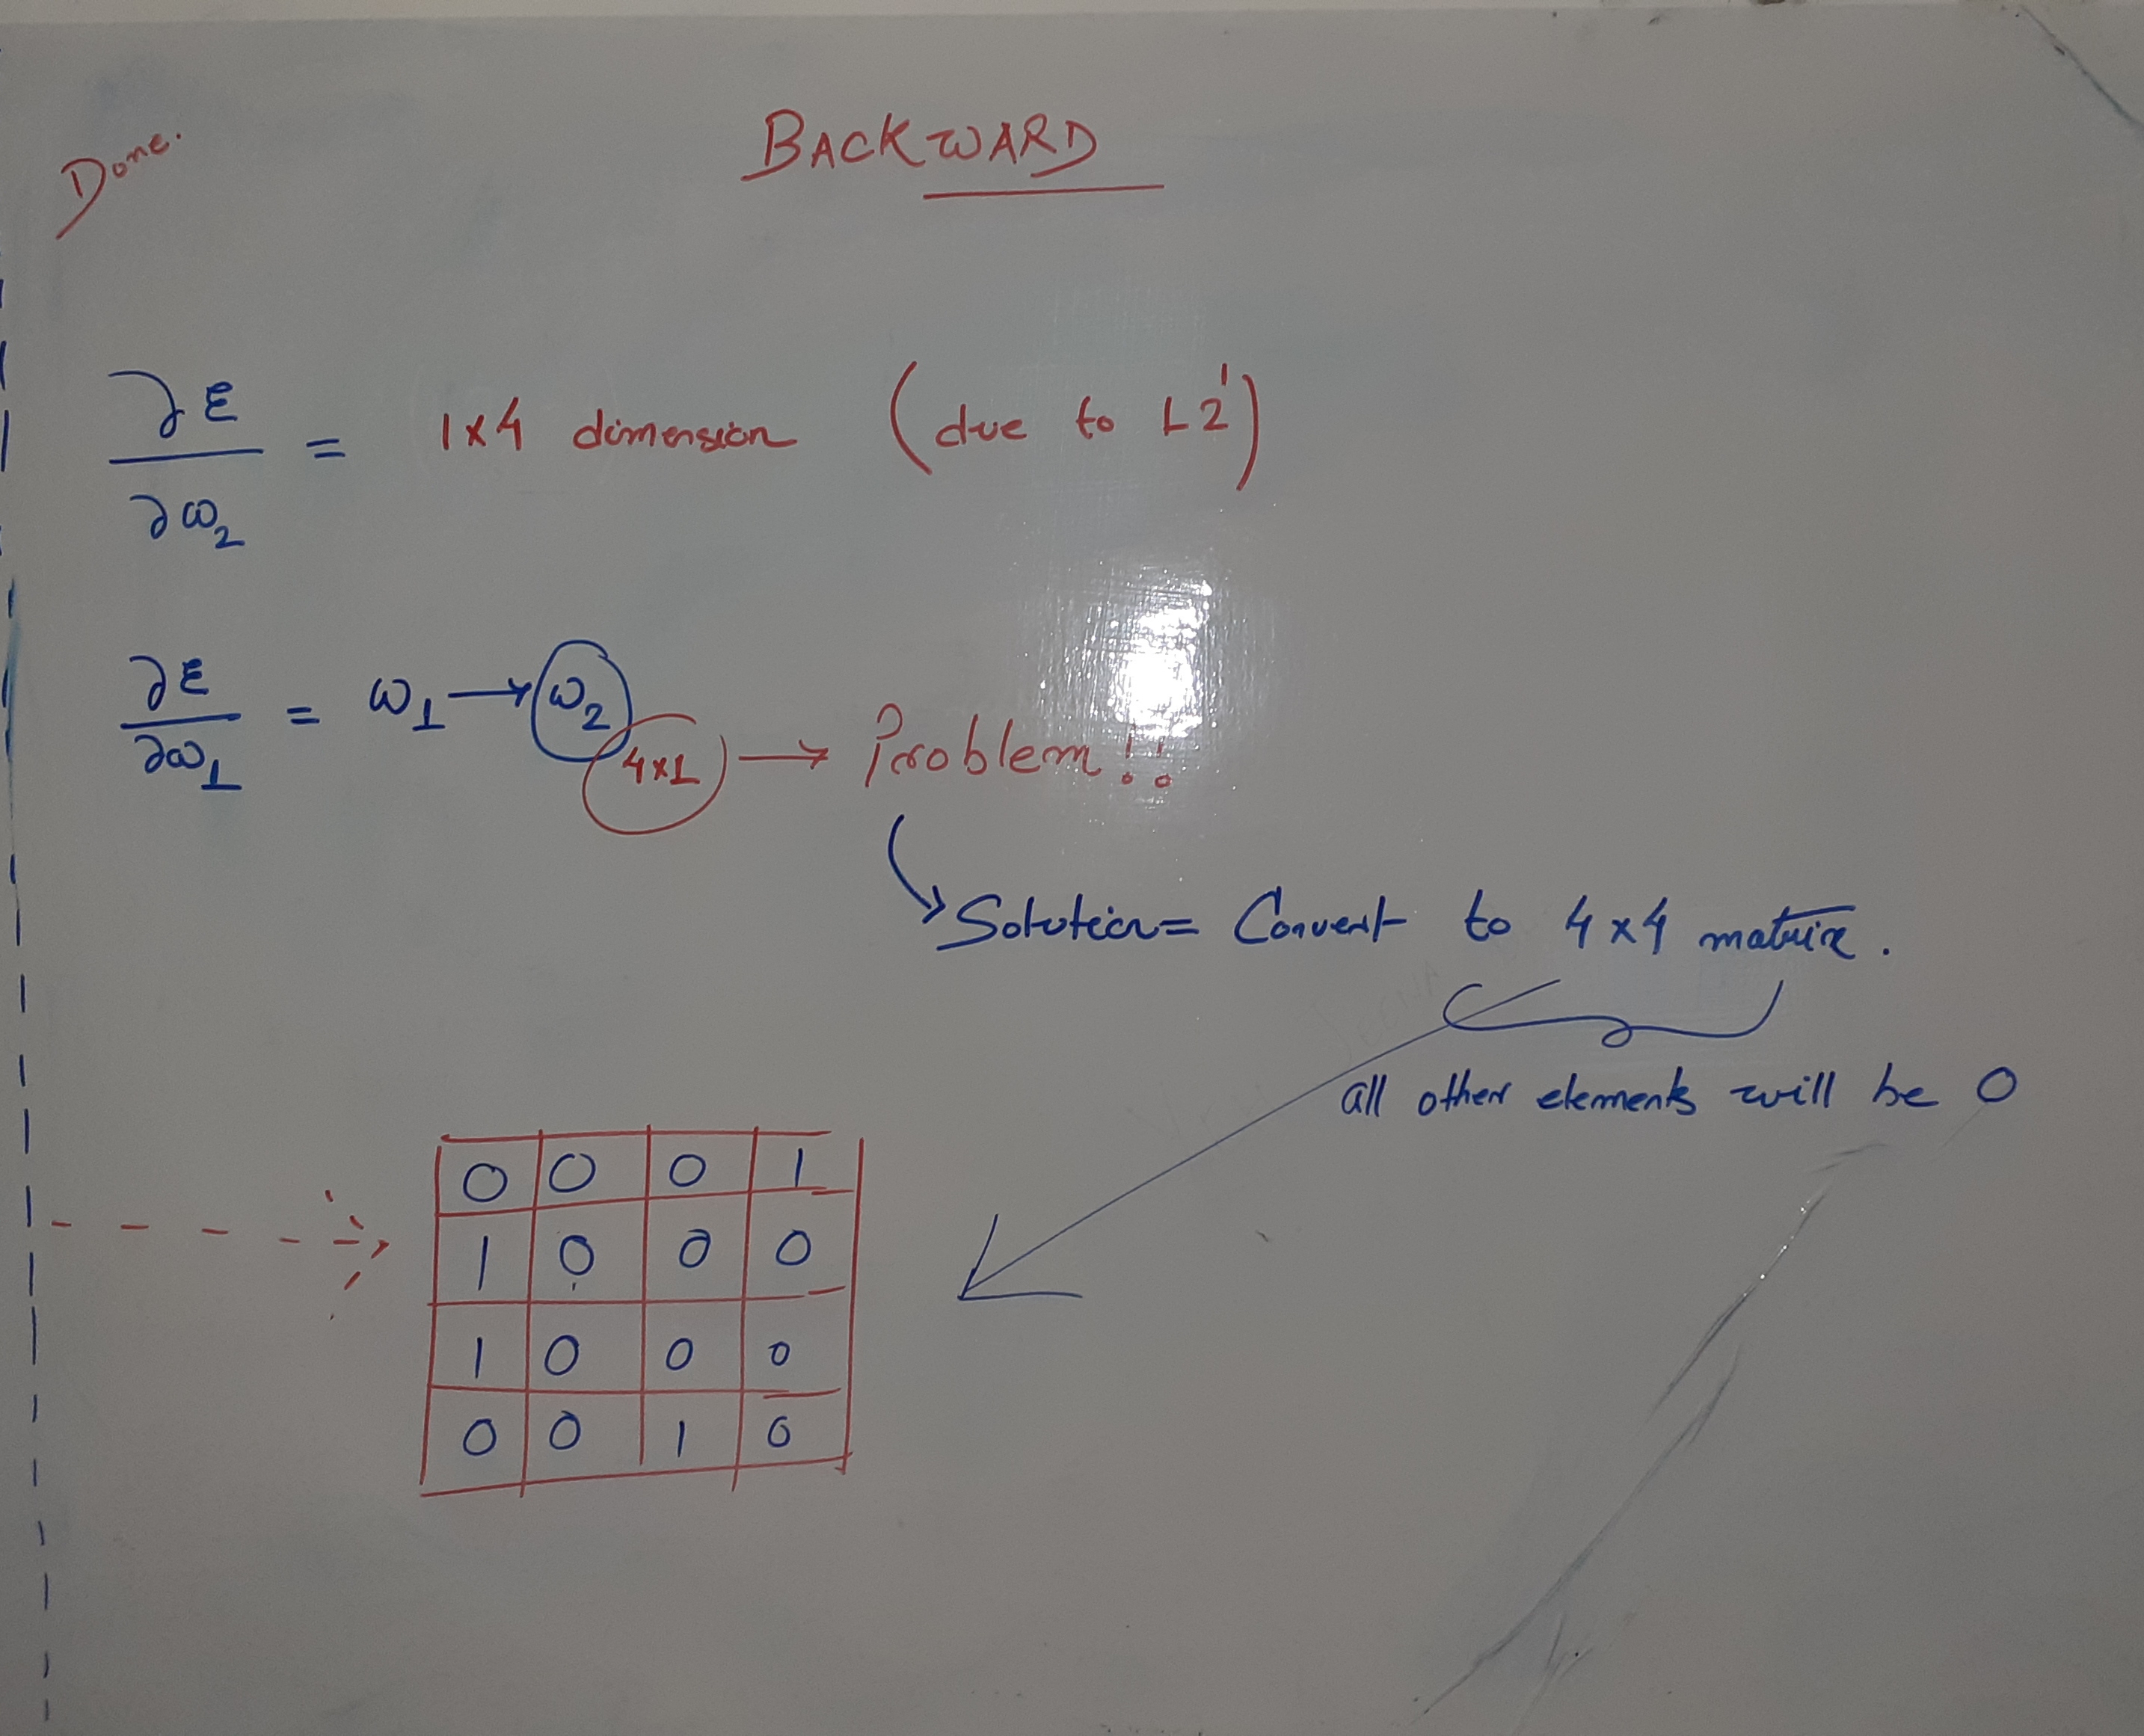 Done.
BACKWARD
∂E/∂ω₂ = 1×4 dimension (due to L2')
∂E/∂ω₁ = ω₁ → ω₂ 4×1 → Problem!!
Solution = Convert to 4×4 matrix.
all other elements will be 0
0 0 0 1
1 0 0 0
1 0 0 0
0 0 1 0